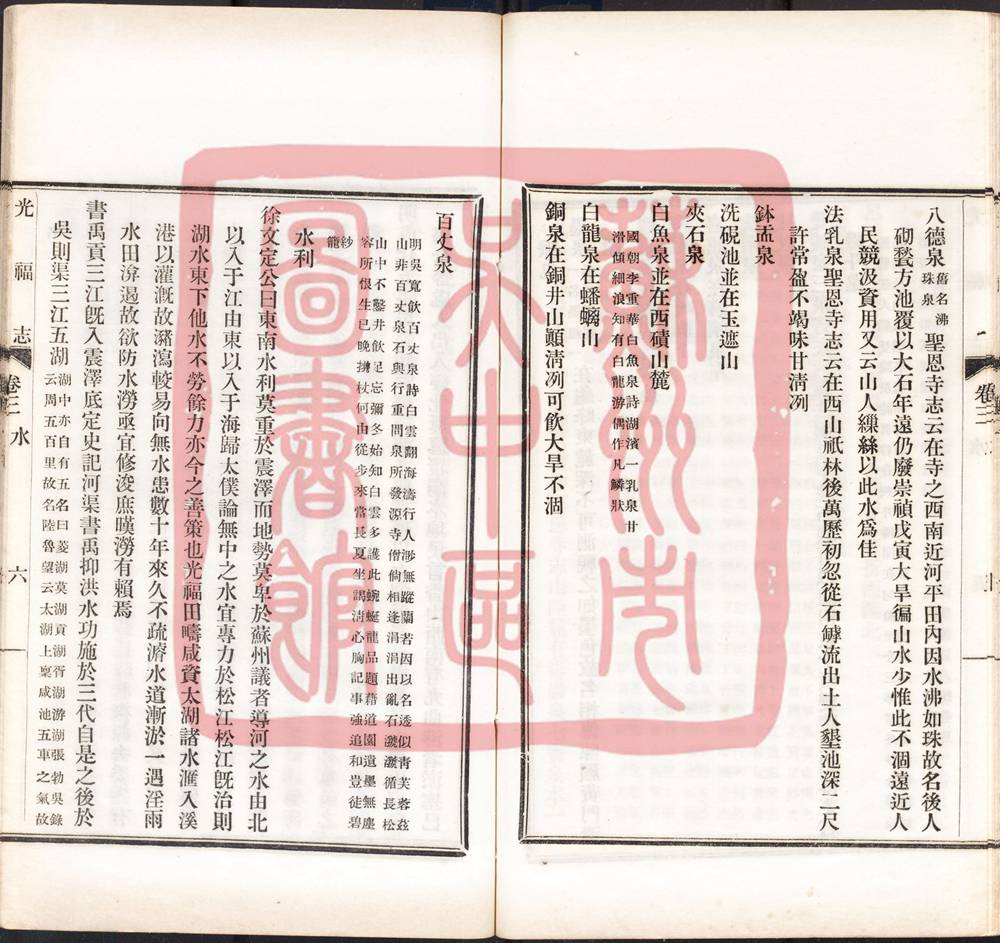 八德泉舊名沸珠泉聖恩寺志云在寺之西南近河平田內因水沸如珠故名後人
砌甃方池覆以大石年遠仍廢崇禎戊寅大旱徧山水少惟此不涸遠近人
民競汲資用又云山人繅絲以此水爲佳
法乳泉聖恩寺志云在西山祇林後萬歷初忽從石罅流出土人墾池深二尺
許常盈不竭味甘淸冽
鉢盂泉
洗硯池並在玉遮山
夾石泉
白魚泉並在西磧山麓
國朝李重華白魚泉詩湖濱一乳泉甘
滑傾細浪定知有白龍游偶作凡鱗狀
白龍泉在蟠螭山
銅泉在銅井山顚淸冽可飮大旱不涸
卷三
百丈泉
明吳寬飮百丈泉詩白雲翻海濤行人渺無蹤蘭者因以名透似靑芙蓉茲
山非百丈泉石興行重問泉所發源寺僧倘相逢涓涓出亂石濺濺循長松
山中不鑿井飮足忘彌冬始知白雲多護此蜿蜒龍品題藉道園遺墨無塵
容所恨生已晚攜杖何由從步來當長夏坐謁淸心胸記事強追和豈徒碧
紗
籠
水利
徐文定公曰東南水利莫重於震澤而地勢莫卑於蘇州議者導河之水由北
以入于江由東以入于海歸太僕論無中之水宜專力於松江松江旣治則
湖水東下他水不勞餘力亦今之善策也光福田疇咸資太湖諸水滙入溪
港以灌漑故瀦瀉較易向無水患數十年來久不疏濬水道漸淤一遇淫雨
水田渰遏故欲防水澇亟宜修浚庶暵澇有賴焉
書禹貢三江旣入震澤底定史記河渠書禹抑洪水功施於三代自是之後於
吳則渠三江五湖
湖中亦自有五名曰菱湖莫湖貢湖胥湖游湖張勃吳錄
云周五百里故名陸魯望云太湖上稟咸池五車之氣故
光福志
卷三
水
六
蘇州市
吳中區
圖書館